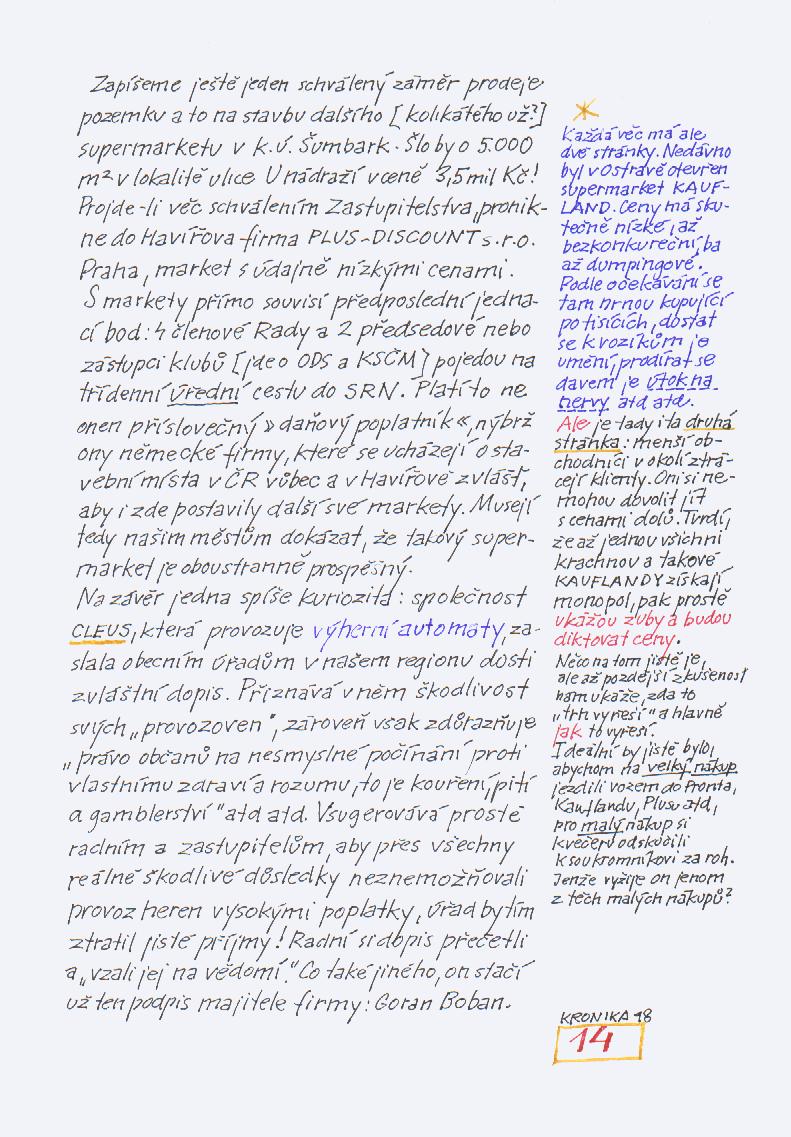 Zapíšeme ještě jeden schválený záměr prodeje
pozemku a to na stavbu dalšího [kolikátého už?]
supermarketu v k.ú. Šumbark. Šlo by o 5.000
m² v lokalitě ulice U nádraží v ceně 3,5 mil Kč!
Projde-li věc schválením Zastupitelstva, pronik-
ne do Havířova firma PLUS-DISCOUNT s.r.o.
Praha, market s údajně nízkými cenami.
S markety přímo souvisí předposlední jedna-
cí bod: 4 členové Rady a 2 předsedové nebo
zástupci klubů [jde o ODS a KSČM] pojedou na
třídenní úřední cestu do SRN. Platí to ne
onen příslovečný »daňový poplatník«, nýbrž
ony německé firmy, které se ucházejí o sta-
vební místa v ČR vůbec a v Havířově zvlášť,
aby i zde postavily další své markety. Musejí
tedy našim městům dokázat, že takový super-
market je oboustranně prospěšný.
Na závěr jedna spíše kuriozita: společnost
CLEUS, která provozuje výherní automaty, za-
slala obecním úřadům v našem regionu dosti
zvláštní dopis. Přiznává v něm škodlivost
svých „provozoven", zároveň však zdůrazňuje
„právo občanů na nesmyslné počínání proti
vlastnímu zdraví a rozumu, to je kouření, pití
a gamblerství" atd atd. Vsugerovává prostě
radním a zastupitelům, aby přes všechny
reálné škodlivé důsledky neznemožňovali
provoz heren vysokými poplatky, úřad by tím
ztratil jisté příjmy! Radní si dopis přečetli
a „vzali jej na vědomí." Co také jiného, on stačí
už ten podpis majitele firmy: Goran Boban.
Každá věc má ale
dvě stránky. Nedávno
byl v Ostravě otevřen
supermarket KAUF-
LAND. Ceny má sku-
tečně nízké, až
bezkonkureční, ba
až dumpingové.
Podle očekávání se
tam hrnou kupující
po tisících, dostat
se k vozíkům je
umění, prodírat se
davem je útok na
nervy atd atd.
Ale je tady i ta druhá
stránka: menší ob-
chodníci v okolí ztrá-
cejí klienty. Oni si ne-
mohou dovolit jít
s cenami dolů. Tvrdí,
že až jednou všichni
krachnou a takové
KAUFLANDY získají
monopol, pak prostě
ukážou zuby a budou
diktovat ceny.
Něco na tom jistě je,
ale až pozdější zkušenost
nám ukáže, zda to
„trh vyřeší" a hlavně
jak to vyřeší.
Ideální by jistě bylo,
abychom na velký nákup
jezdili vozem do Pronta,
Kauflandu, Plusu atd,
pro malý nákup si
kvečeru odskočili
k soukromníkovi za roh.
Jenže vyžije on jenom
z těch malých nákupů?
KRONIKA 18
14